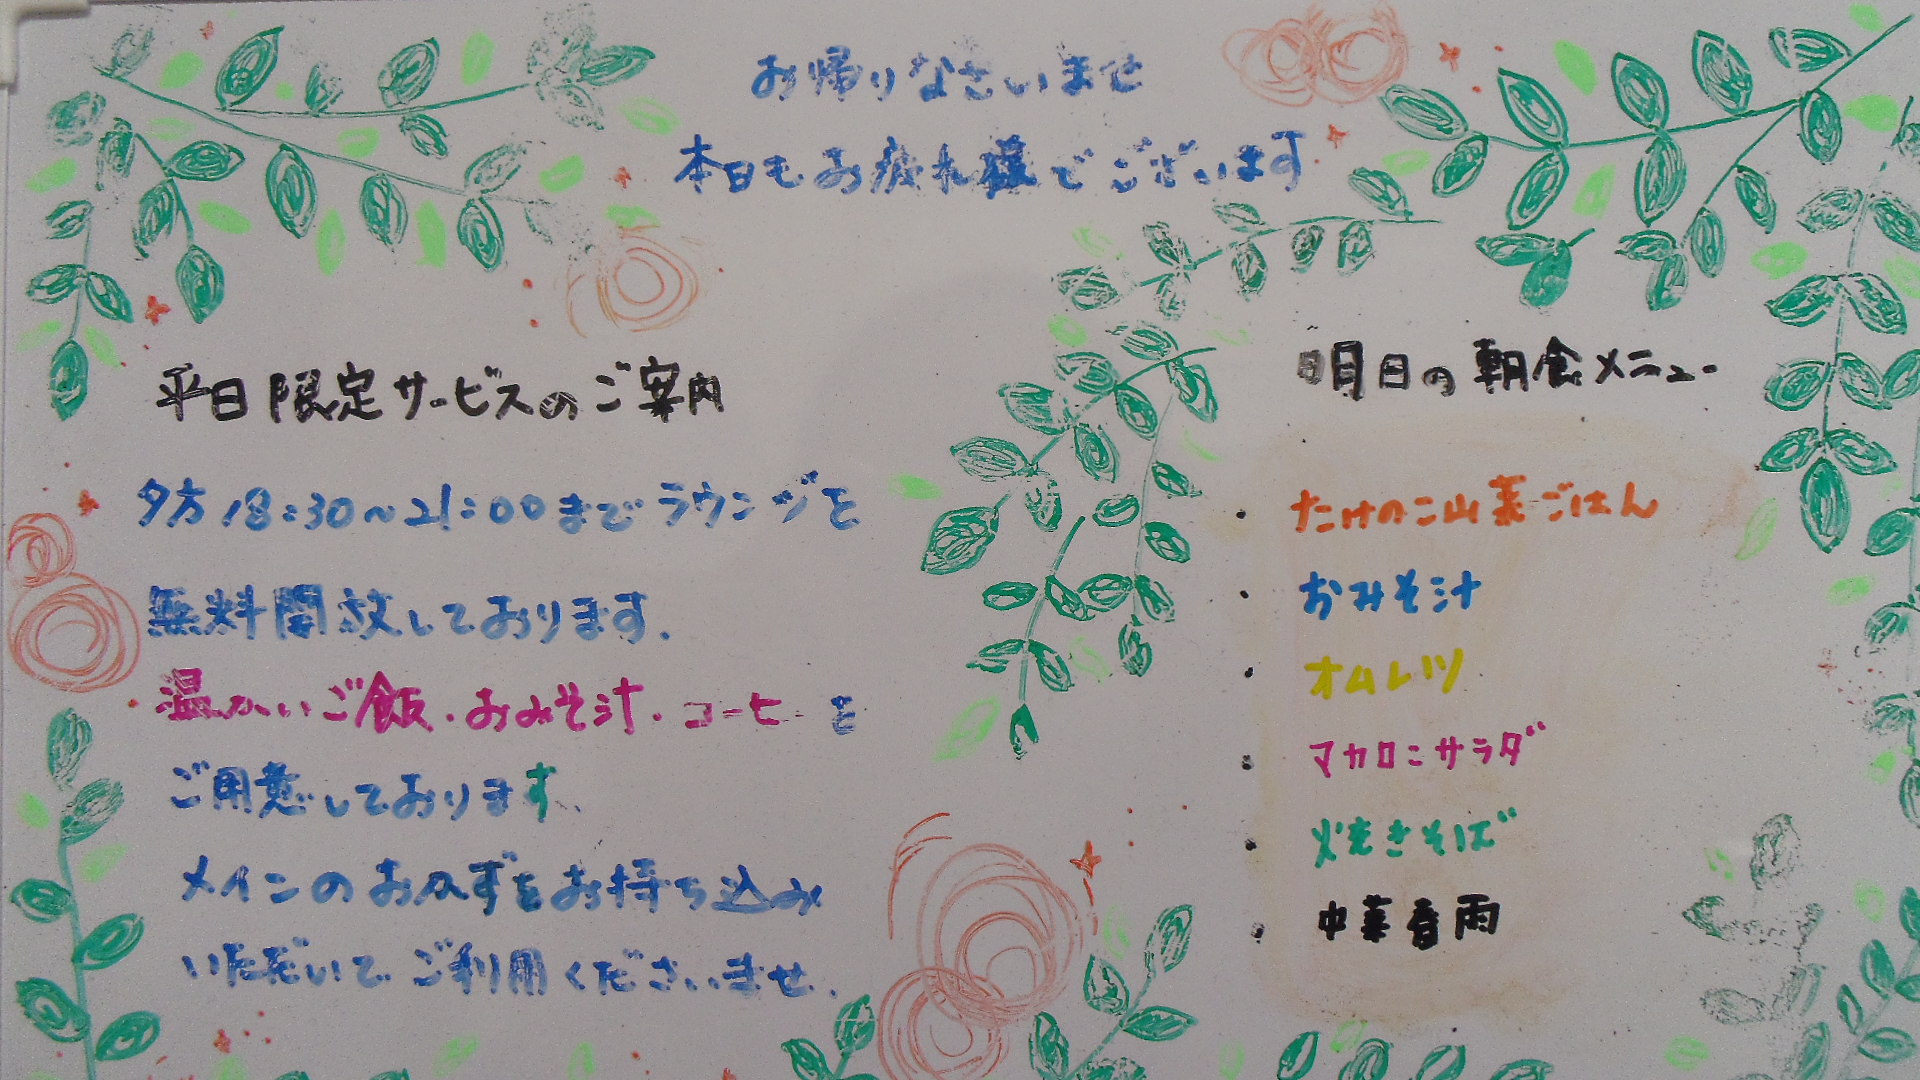 お帰りなさいませ
本日もお疲れ様でございます
平日限定サービスのご案内
夕方18:30~21:00までラウンジを
無料開放しております.
温かいご飯・おみそ汁・コーヒーを
ご用意しております、
メインのおかずをお持ち込み
いただいてご利用くださいませ.
明日の朝食メニュー
・たけのこ山菜ごはん
・おみそ汁
・オムレツ
・マカロニサラダ
・焼きそば
・中華春雨